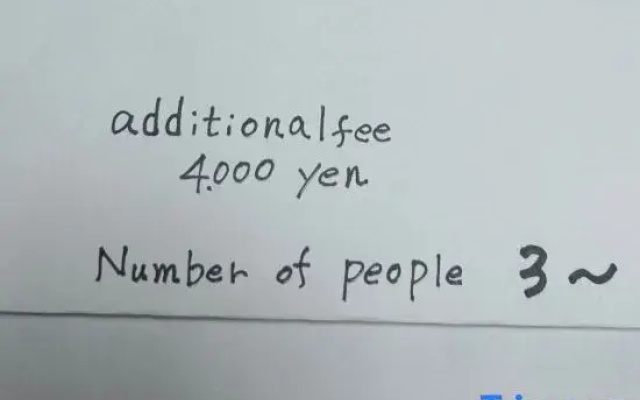 additional fee
4.000 yen
Number of people 3~